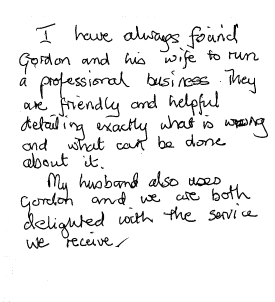 I have always found
Gordon and his wife to run
a professional business. They
are friendly and helpful
detailing exactly what is wrong
and what can be done
about it.
My husband also uses
Gordon and we are both
delighted with the service
we receive